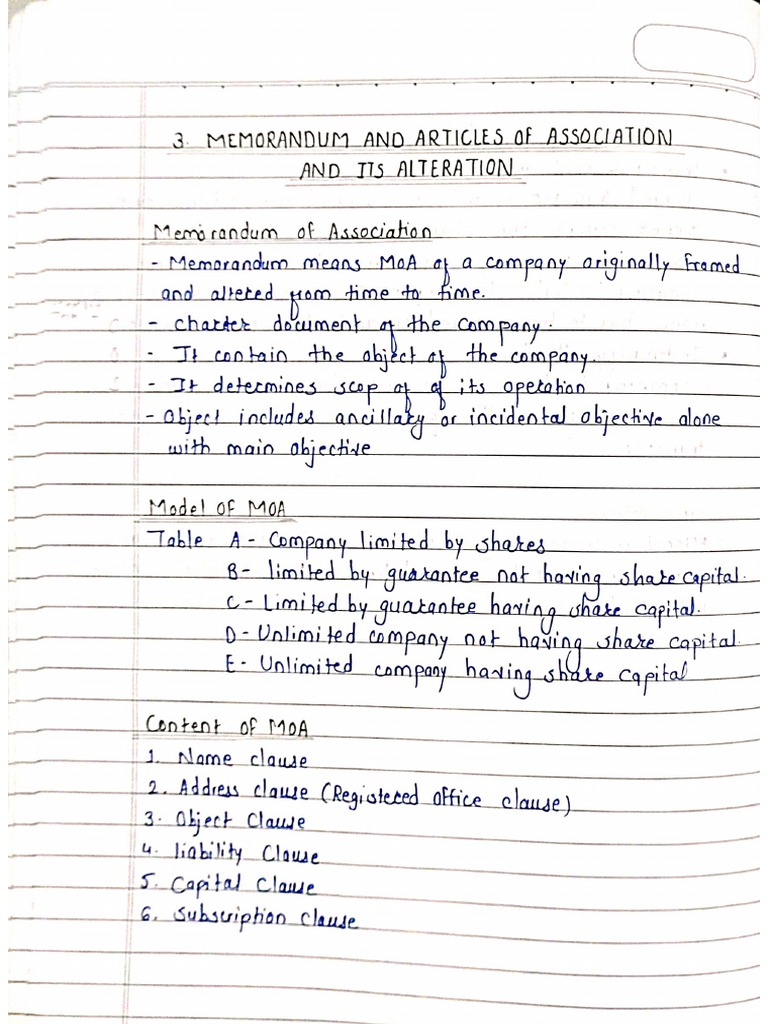 3. MEMORANDUM AND ARTICLES OF ASSOCIATION
AND ITS ALTERATION
Memorandum of Association
- Memorandum means MoA of a company originally framed
and altered from time to time.
- charter document of the company.
- It contain the object of the company.
- It determines scop of of its operation
- Object includes ancillary or incidental objective alone
with main objective
Model OF MOA
Table A - Company limited by shares
B - limited by guarantee not having share capital.
C - Limited by guarantee having share capital.
D - Unlimited company not having share capital.
E - Unlimited company having share capital
Content OF MOA
1. Name clause
2. Address clause (Registered office clause)
3. Object Clause
4. liability Clause
5. Capital Clause
6. Subscription clause